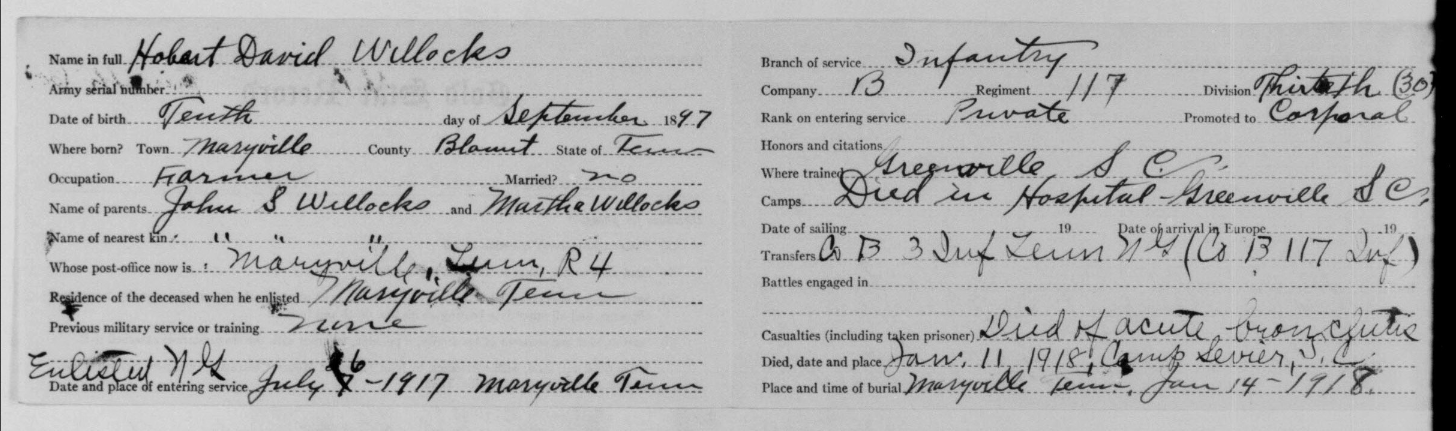 Name in full Hobart David Willocks
Army serial number
Date of birth Tenth day of September 1897
Where born? Town Maryville County Blount State of Tenn
Occupation Farmer Married? no
Name of parents John S Willocks and Martha Willocks
Name of nearest kin " " "
Whose post-office now is Maryville, Tenn, R 4
Residence of the deceased when he enlisted Maryville Tenn
Previous military service or training None
Enlisted N G
Date and place of entering service July 6 -1917 Maryville Tenn
Branch of service Infantry
Company B Regiment 117 Division Thirtieth (30)
Rank on entering service Private Promoted to Corporal
Honors and citations
Where trained Greenville S C.
Camps Died in Hospital - Greenville S C.
Date of sailing 19 Date of arrival in Europe 19
Transfers Co B 3 Inf Tenn N G (Co B 117 Inf)
Battles engaged in
Casualties (including taken prisoner) Died of acute bronchitis
Died, date and place Jan. 11, 1918, Camp Sevier, S. C.
Place and time of burial Maryville Tenn, Jan 14 - 1918.